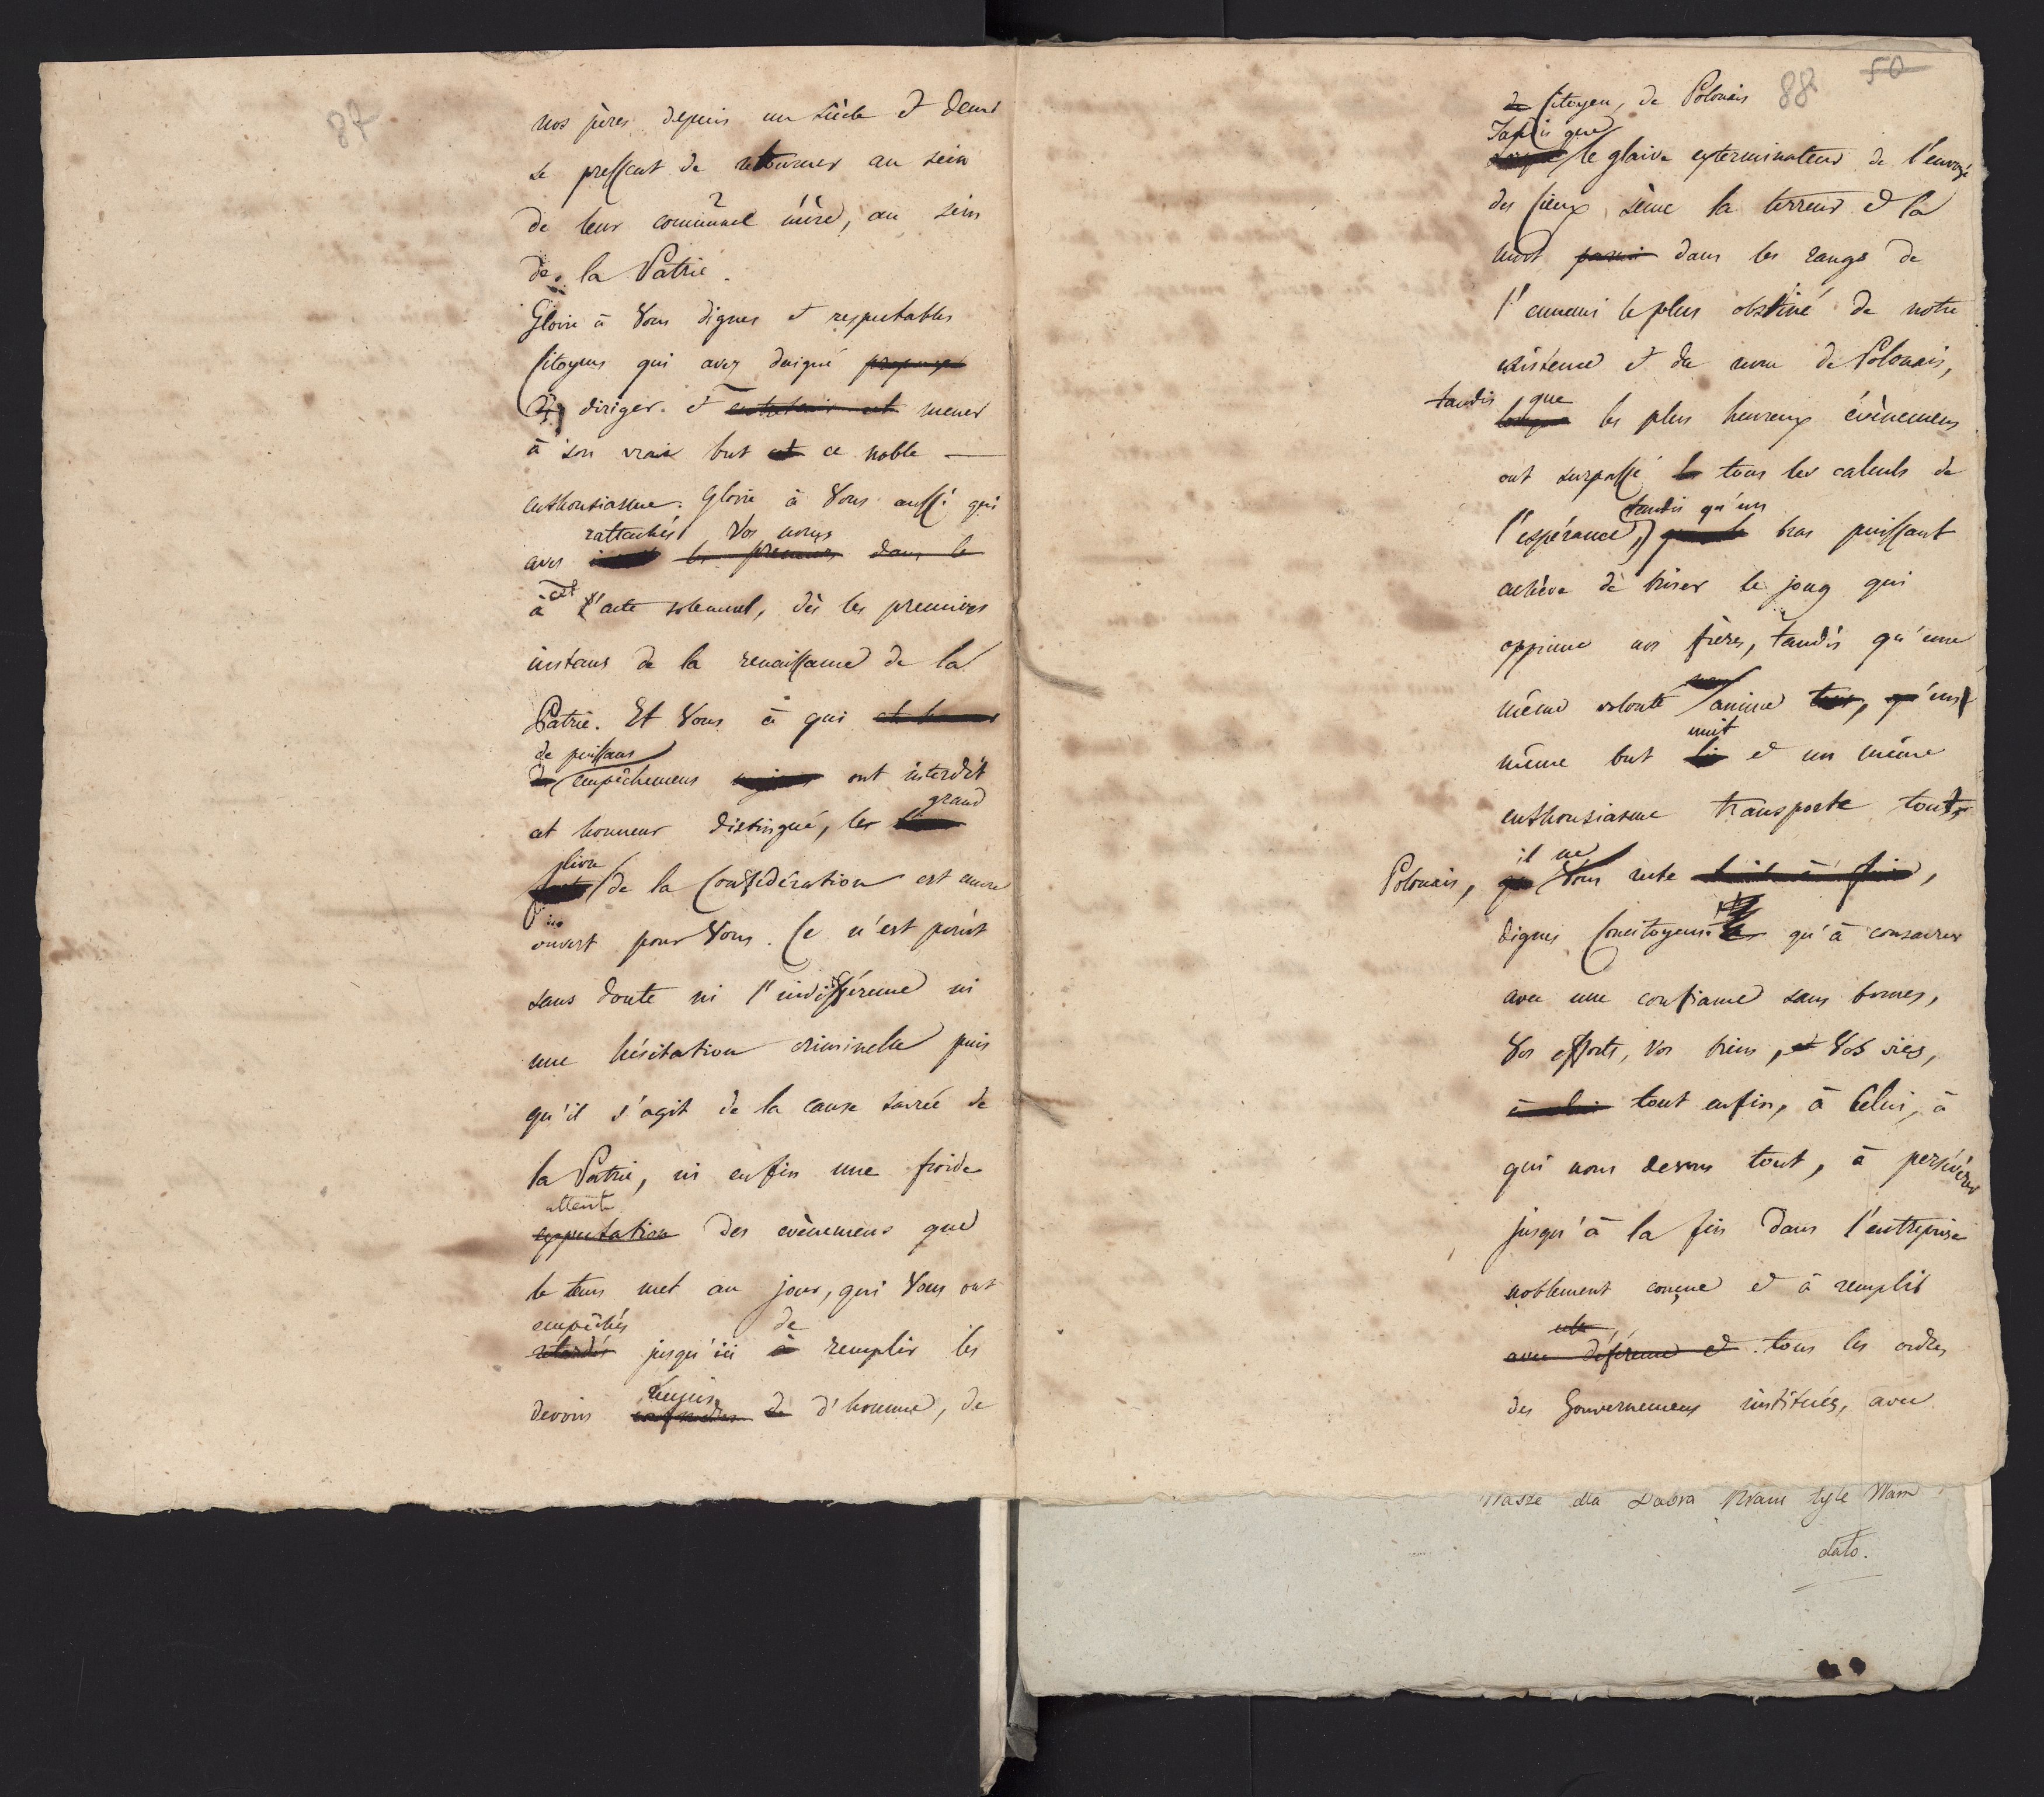 87
nos pères depuis un siècle et demi
se pressent de retourner au sein
de leur commune mère, au sein
de la Patrie.
Gloire à Vous dignes et respectables
Citoyens qui avez daigné
diriger et mener
à son vrai but ce noble —
enthousiasme. Gloire à Vous aussi qui
rattachés Vos noms
avez les premiers dans le
à cet acte solemnel, dès les premiers
instans de la renaissance de la
Patrie. Et Vous à qui
de puissans
empêchemens ont interdit
grand
cet honneur distingué, les
livre
de la Confédération est encore
ouvert pour Vous. Ce n'est point
sans doute ni l'indifférence ni
une hésitation criminelle puis
qu'il s'agit de la cause sacrée de
la Patrie, ni enfin une froide
attente
expectation des evènemens que
le tems met au jour, qui Vous ont
empêchés de
retardés jusqu'ici à remplir les
devoirs de d'homme, de
88 50
de Citoyen, de Polonais
Tandis que
le glaive exterminateur de l'envoyé
des Cieux sème la terreur et la
mort parmi dans les rangs de
l'ennemi le plus obstiné de notre
existence et du nom de Polonais,
tandis que
lorsque les plus heureux évènemens
ont surpassé tous les calculs de
tandis qu'un
l'espérance, bras puissant
achève de briser le joug qui
opprime nos frères, tandis qu'une
même volonté anime tous, qu'un
unit
même but et un même
enthousiasme transporte tout,
il ne
Polonais, Vous reste
dignes Concitoyens qu'à consacrer
avec une confiance sans bornes,
Vos efforts, Vos biens, et Vos vies,
à lui tout enfin, à Celui, à
qui nous devons tout, à persévérer
jusqu'à la fin dans l'entreprise
noblement conçue et à remplir
avec déférence et tous les ordres
des Gouvernemens institués, avec
Wasze dla Dobra Kraiu tyle Wam
dato.